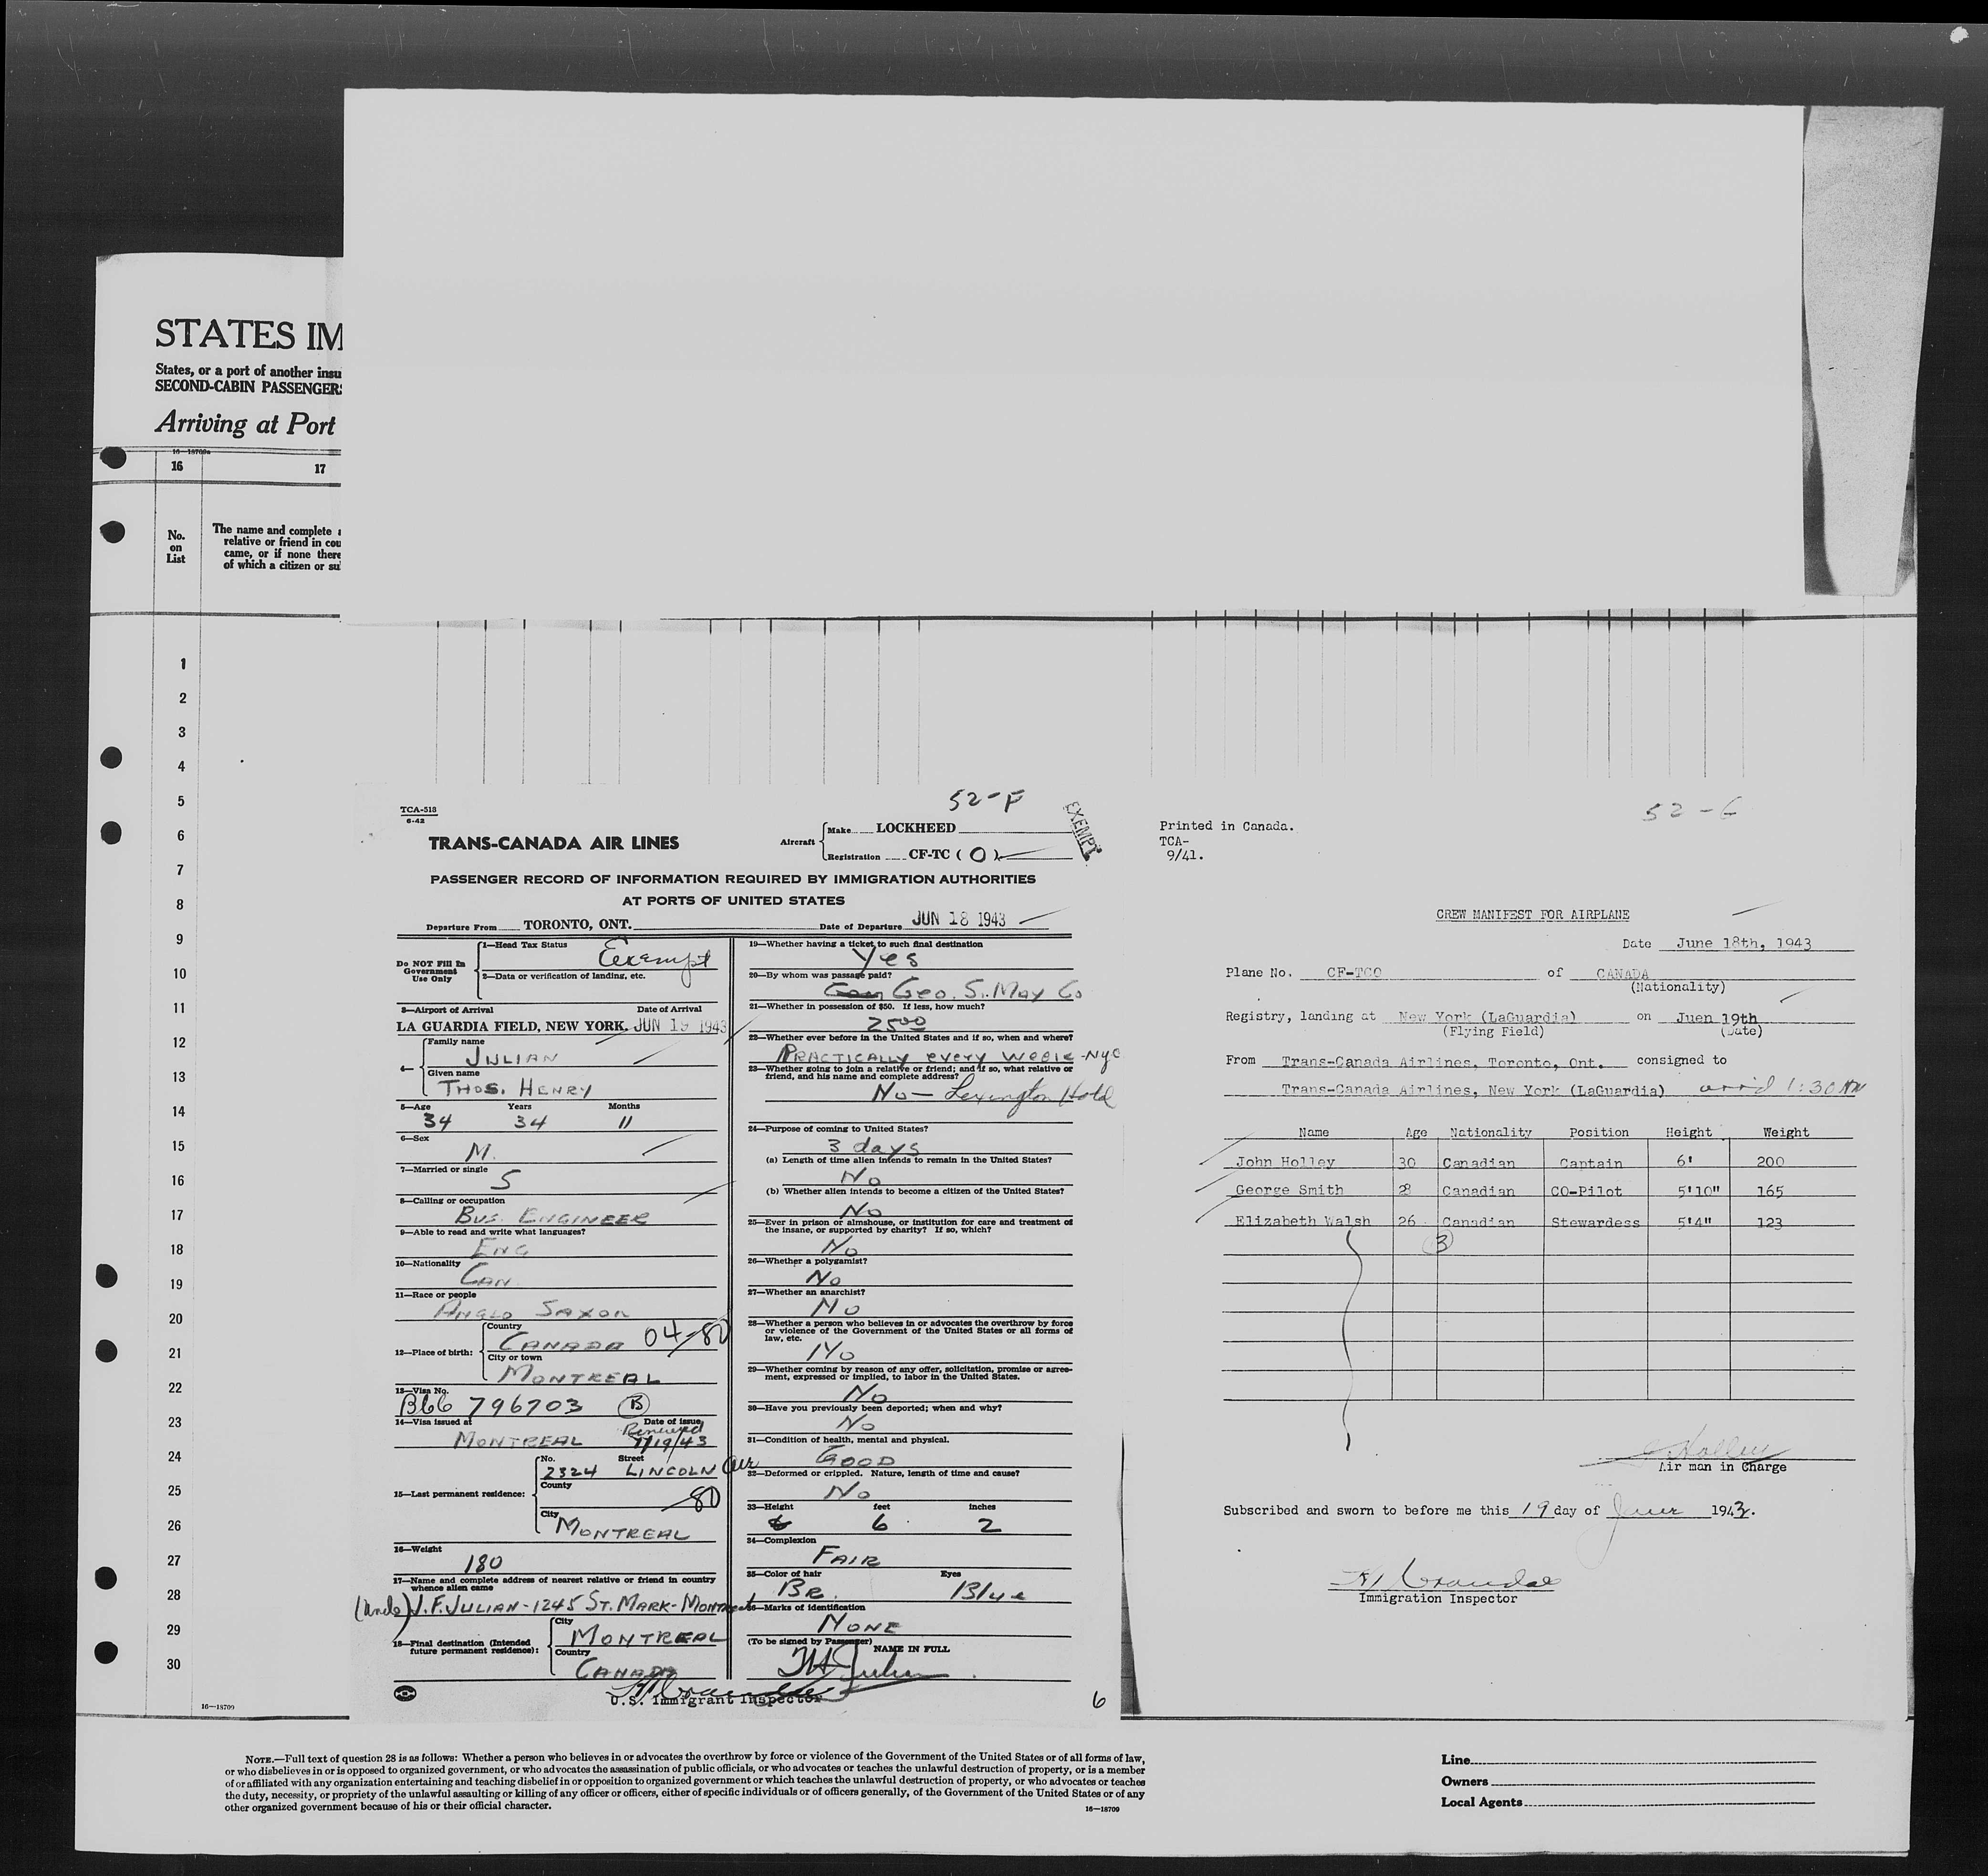 STATES IM
States, or a port of another insu
SECOND-CABIN PASSENGERS
Arriving at Port
16—18709a
16 17
No. on List
The name and complete a
relative or friend in cou
came, or if none there
of which a citizen or su
1
2
3
4
5
6
7
8
9
10
11
12
13
14
15
16
17
18
19
20
21
22
23
24
25
26
27
28
29
30
16—18709
52-F
TCA-518
6-42
EXEMPT
TRANS-CANADA AIR LINES
Aircraft Make LOCKHEED
Registration CF-TC (O)
PASSENGER RECORD OF INFORMATION REQUIRED BY IMMIGRATION AUTHORITIES
AT PORTS OF UNITED STATES
Departure From TORONTO, ONT. Date of Departure JUN 18 1943
Do NOT Fill In Government Use Only
1—Head Tax Status Exempt
2—Data or verification of landing, etc.
3—Airport of Arrival Date of Arrival
LA GUARDIA FIELD, NEW YORK. JUN 19 1943
4— Family name
JULIAN
Given name
THOS. HENRY
5—Age Years Months
34 34 11
6—Sex
M.
7—Married or single
S
8—Calling or occupation
BUS. ENGINEER
9—Able to read and write what languages?
ENG
10—Nationality
CAN.
11—Race or people
ANGLO SAXON
12—Place of birth: Country
CANADA 04-80
City or town
MONTREAL
13—Visa No.
B66 796703 B
14—Visa issued at Date of issue
MONTREAL Renewed 1/19/43
15—Last permanent residence: No. Street
2324 LINCOLN Ave
County
80
City
MONTREAL
16—Weight
180
17—Name and complete address of nearest relative or friend in country
whence alien came
(Uncle) J. F. JULIAN - 1245 ST. MARK - MONTREAL
18—Final destination (Intended future permanent residence): City
MONTREAL
Country
CANADA
U.S. Immigrant Inspector
19—Whether having a ticket to such final destination
Yes
20—By whom was passage paid?
Geo. S. May Co
21—Whether in possession of $50. If less, how much?
25 00
22—Whether ever before in the United States and if so, when and where?
PRACTICALLY every week - NYC
23—Whether going to join a relative or friend; and if so, what relative or
friend, and his name and complete address?
No — Lexington Hotel
24—Purpose of coming to United States?
3 days
(a) Length of time alien intends to remain in the United States?
No
(b) Whether alien intends to become a citizen of the United States?
No
25—Ever in prison or almshouse, or institution for care and treatment of
the insane, or supported by charity? If so, which?
No
26—Whether a polygamist?
No
27—Whether an anarchist?
No
28—Whether a person who believes in or advocates the overthrow by force
or violence of the Government of the United States or all forms of
law, etc.
No
29—Whether coming by reason of any offer, solicitation, promise or agree-
ment, expressed or implied, to labor in the United States.
No
30—Have you previously been deported; when and why?
No
31—Condition of health, mental and physical.
GOOD
32—Deformed or crippled. Nature, length of time and cause?
No
33—Height feet inches
6 2
34—Complexion
FAIR
35—Color of hair Eyes
BR. Blue
36—Marks of identification
NONE
(To be signed by Passenger) NAME IN FULL
TH Julian
6
52-G
Printed in Canada.
TCA-
9/41.
CREW MANIFEST FOR AIRPLANE
Date June 18th, 1943
Plane No. CF-TCO of CANADA
(Nationality)
Registry, landing at New York (LaGuardia) on Juen 19th
(Flying Field) (Date)
From Trans-Canada Airlines, Toronto, Ont. consigned to
Trans-Canada Airlines, New York (LaGuardia) arr'd 1:30 AM
Name Age Nationality Position Height Weight
John Holley 30 Canadian Captain 6' 200
George Smith 28 Canadian CO-Pilot 5'10" 165
Elizabeth Walsh 26 Canadian Stewardess 5'4" 123
3
J Holley
Air man in Charge
Subscribed and sworn to before me this 19 day of June 1943.
Immigration Inspector
NOTE.—Full text of question 28 is as follows: Whether a person who believes in or advocates the overthrow by force or violence of the Government of the United States or of all forms of law,
or who disbelieves in or is opposed to organized government, or who advocates the assassination of public officials, or who advocates or teaches the unlawful destruction of property, or is a member
of or affiliated with any organization entertaining and teaching disbelief in or opposition to organized government or which teaches the unlawful destruction of property, or who advocates or teaches
the duty, necessity, or propriety of the unlawful assaulting or killing of any officer or officers, either of specific individuals or of officers generally, of the Government of the United States or of any
other organized government because of his or their official character.
16—18709
Line
Owners
Local Agents